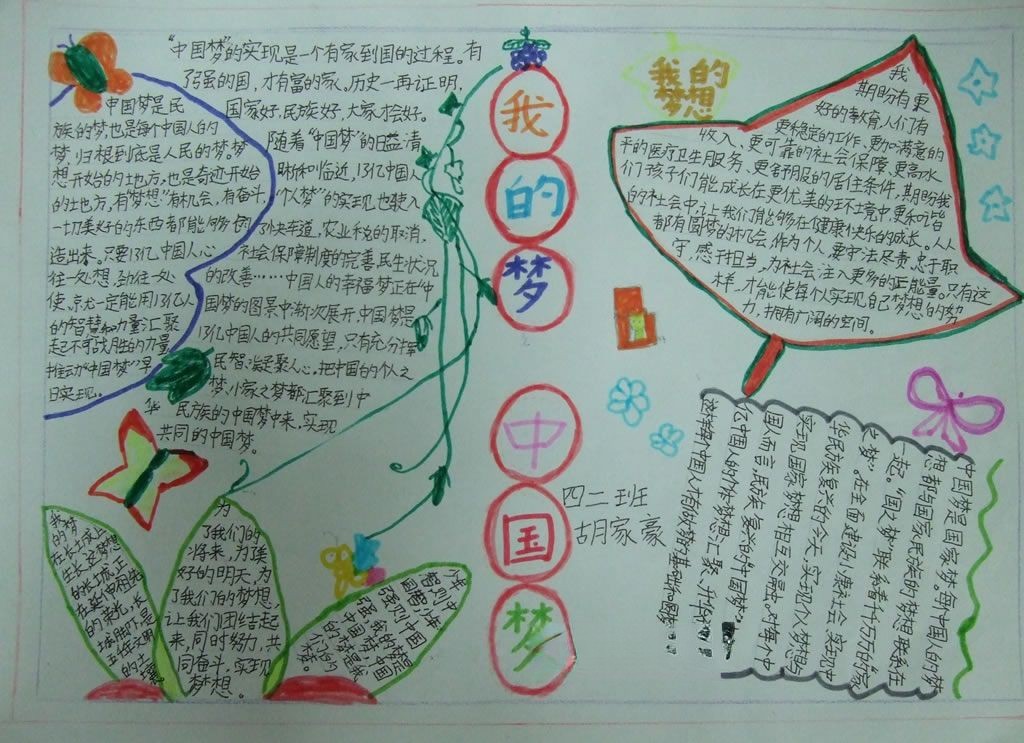 “中国梦”的实现是一个有家到国的过程。有
了强的国，才有富的家。历史一再证明，
国家好，民族好，大家才会好。
随着“中国梦”的日益清
晰和临近，13亿中国人
“个人梦”的实现也驶入
了快车道，农业税的取消，
社会保障制度的完善民生状况
的改善……中国人的幸福梦正在中
国梦的图景中渐次展开，中国梦是
13亿中国人的共同愿望，只有充分挥
民智，凝聚人心，把中国的个人之
梦、小家之梦都汇聚到中
华民族的中国梦中来，实现
共同的中国梦。
中国梦是民
族的梦也是每个中国人的
梦，归根到底是人民的梦。梦
想开始的土地方，也是奇迹开始
的土地方，有梦想，有机会，有奋斗，
一切美好的东西都能够创
造出来。只要13亿中国人心
往一处想，劲往一处
使，就一定能用13亿人
的智慧和力量汇聚
起不可战胜的力量
推动“中国梦”早
日实现。
我
的
梦
中
国
梦
四二班
胡家豪
我的
梦想
我
期盼有更
好的教育，人们有
更稳定的工作、更加满意的
收入、更可靠的社会保障、更高水
平的医疗卫生服务、更舒服的居住条件，期盼我
们孩子们能成长在更优美的环境中更和谐
的社会中，让我们能够在健康快乐的成长。人人
都有圆梦的机会，作为个人，要守法尽责，忠于职
守，感于担当，为社会注入更多的正能量。只有这
样，才能使每个实现自己梦想的努
力，拥有广阔的空间。
中国梦是国家梦。每个中国人的梦
想都与国家民族的梦想联系在
一起。“国之梦”联系着千千万万的“家
之梦”。在全面建设小康社会、实现中
华民族复兴的今天，实现个人梦想与
实现国家梦想相互交融。对每个中
国人而言，民族复兴的“中国梦”，
亿中国人的个体梦想汇聚、升华
这样每个中国人有放梦的基础和
为
了我们的
将来，为美
好的明天，为
了我们的梦想，
让我们团结起
来，同时努力，共
同奋斗，实现
梦想。